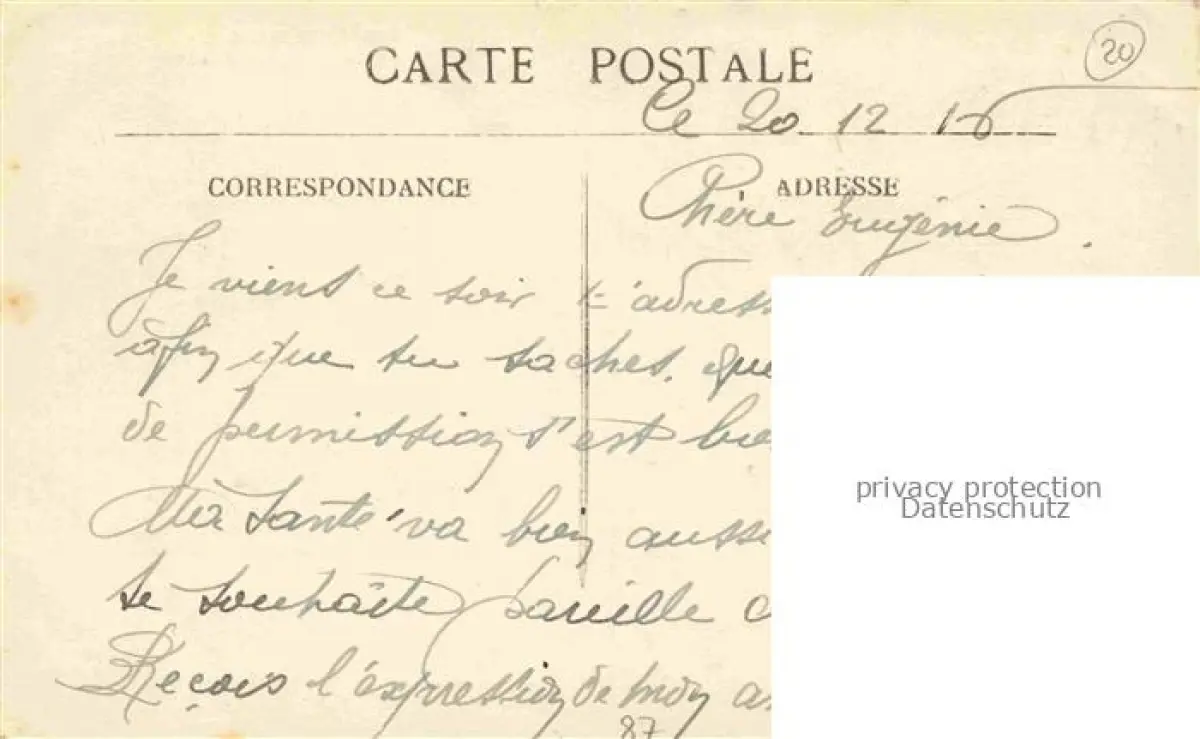 20
CARTE POSTALE
Le 20 12 16
CORRESPONDANCE
ADRESSE
Chère Eugénie
Je viens ce soir t'adress
afin que tu saches. que
de permission s'est bie
Ma santé va bien aussi
te souhaite pareille c
Reçois l'expression de mon a
87
privacy protection
Datenschutz